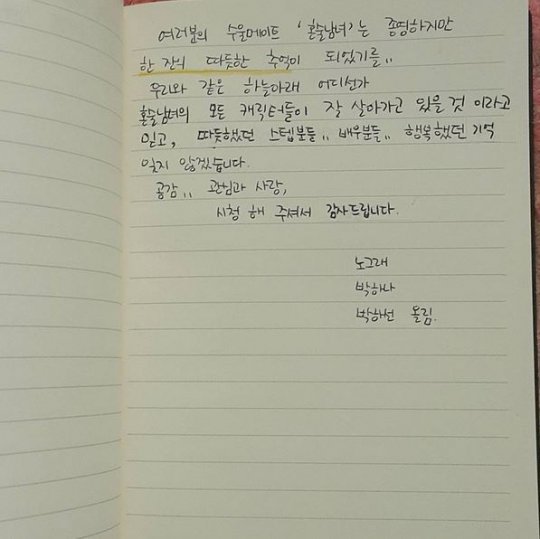 여러분의 수울메이트 '혼술남녀'는 종영하지만
한 잔의 따듯한 추억이 되었기를..
우리와 같은 하늘아래 어디선가
혼술남녀의 모든 캐릭터들이 잘 살아가고 있을 것 이라고
믿고, 따듯했던 스텝분들.. 배우분들.. 행복했던 기억
잊지 않겠습니다.
공감.. 관심과 사랑,
시청 해 주셔서 감사드립니다.
노그래
박하나
박하선 올림.